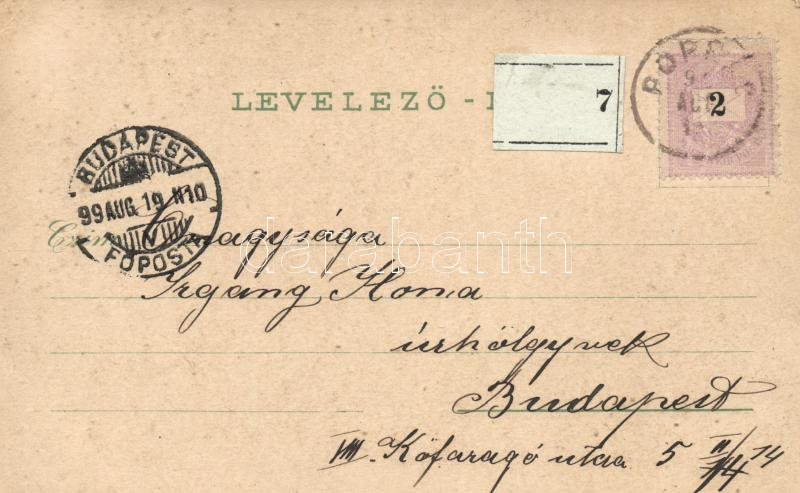 LEVELEZŐ -
7
2
BUDAPEST
99 AUG. 19. N10
FŐPOSTA
darabanth
nagysága
Irgang Ilona
úrhölgynek
Budapest
VIII. Kőfaragó utca 5 II/14